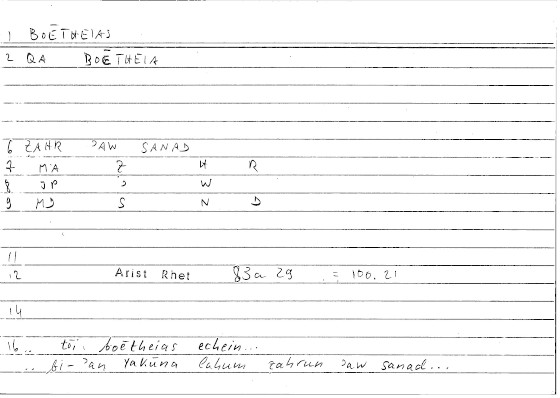 1 BOĒTHEIAS
2 QA BOĒTHEIA
6 ZAHR ʾAW SANAD
7 MA Z H R
8 JP ʾ W
9 MJ S N D
11
12 Arist Rhet 83a 29 = 100.21
14
16 .. tōi. boētheias echein...
.. bi-ʾan yakūna lahum zahrun ʾaw sanad...